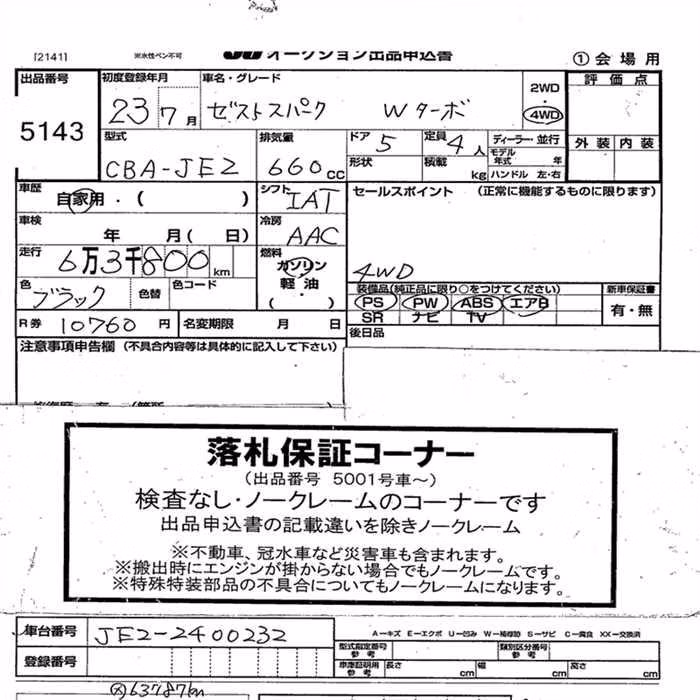 [2141] ※水性ペン不可 オークション出品申込書 ①会場用
出品番号 初度登録年月 車名・グレード 2WD・4WD 評価点
5143 23 7月 ゼストスパーク Wターボ
型式 排気量 ドア 定員 ディーラー・並行 外装 内装
CBA-JE2 660cc 5 4人 モデル年式 年
形状 積載 kg ハンドル 左・右
車歴 シフト セールスポイント (正常に機能するものに限ります)
自家用・( ) IAT
車検 冷房
年 月( 日) AAC
走行 燃料
6万3千800km ガソリン
軽油・( )
4WD
色 色替 色コード
ブラック
装備品(純正品に限り○をつけてください) 新車保証書
PS PW ABS エアB 有・無
SR ナビ TV
R券 10760円 名変期限 月 日 後日品
注意事項申告欄 (不具合内容等は具体的に記入して下さい)
落札保証コーナー
(出品番号 5001号車~)
検査なし・ノークレームのコーナーです
出品申込書の記載違いを除きノークレーム
※不動車、冠水車など災害車も含まれます。
※搬出時にエンジンが掛からない場合でもノークレームです。
※特殊特装部品の不具合についてもノークレームになります。
車台番号 JE2-2400232 A－キズ E－エクボ U－凹み W－補修跡 S－サビ C－腐食 XX－交換済
型式指定番号 参考 類別区分番号 参考
登録番号 車庫証明用 参考 長さ cm 幅 cm 高さ cm
63787km